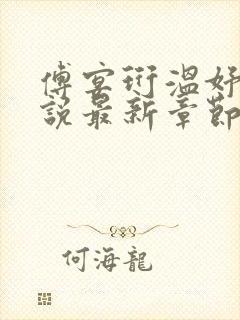 傅宴衍溫好
說最新章節
何海龍